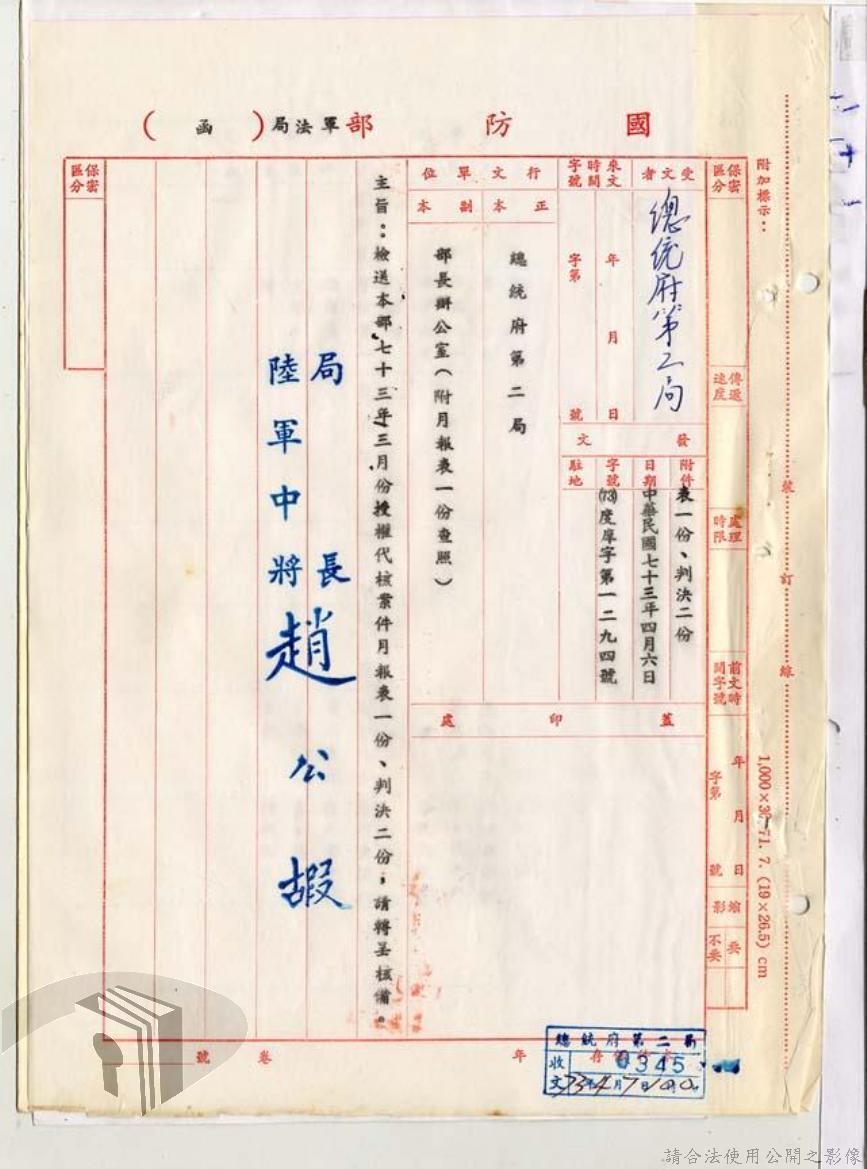 國防部軍法局(函)
附加標示：
裝
訂
線
1,000×3 71. 7. (19×26.5) cm
保密
區分
傳遞
速度
處理
時限
前文時
間字號
年 月 日
字第 號
縮影
要
不要
受文者
總統府第二局
來文
時間
字號
年 月 日
字第 號
發文
附件
表一份、判決二份
日期
中華民國七十三年四月六日
字號
(73)度庠字第一二九四號
駐地
行文單位
正本
總統府第二局
副本
部長辦公室(附月報表一份查照)
蓋印處
主旨：檢送本部七十三年三月份授權代核案件月報表一份、判決二份，請轉呈核備。
局長
陸軍中將趙公嘏
保密
區分
年
存
卷
號
總統府第二局
收文
0345
73年4月7日
請合法使用公開之影像